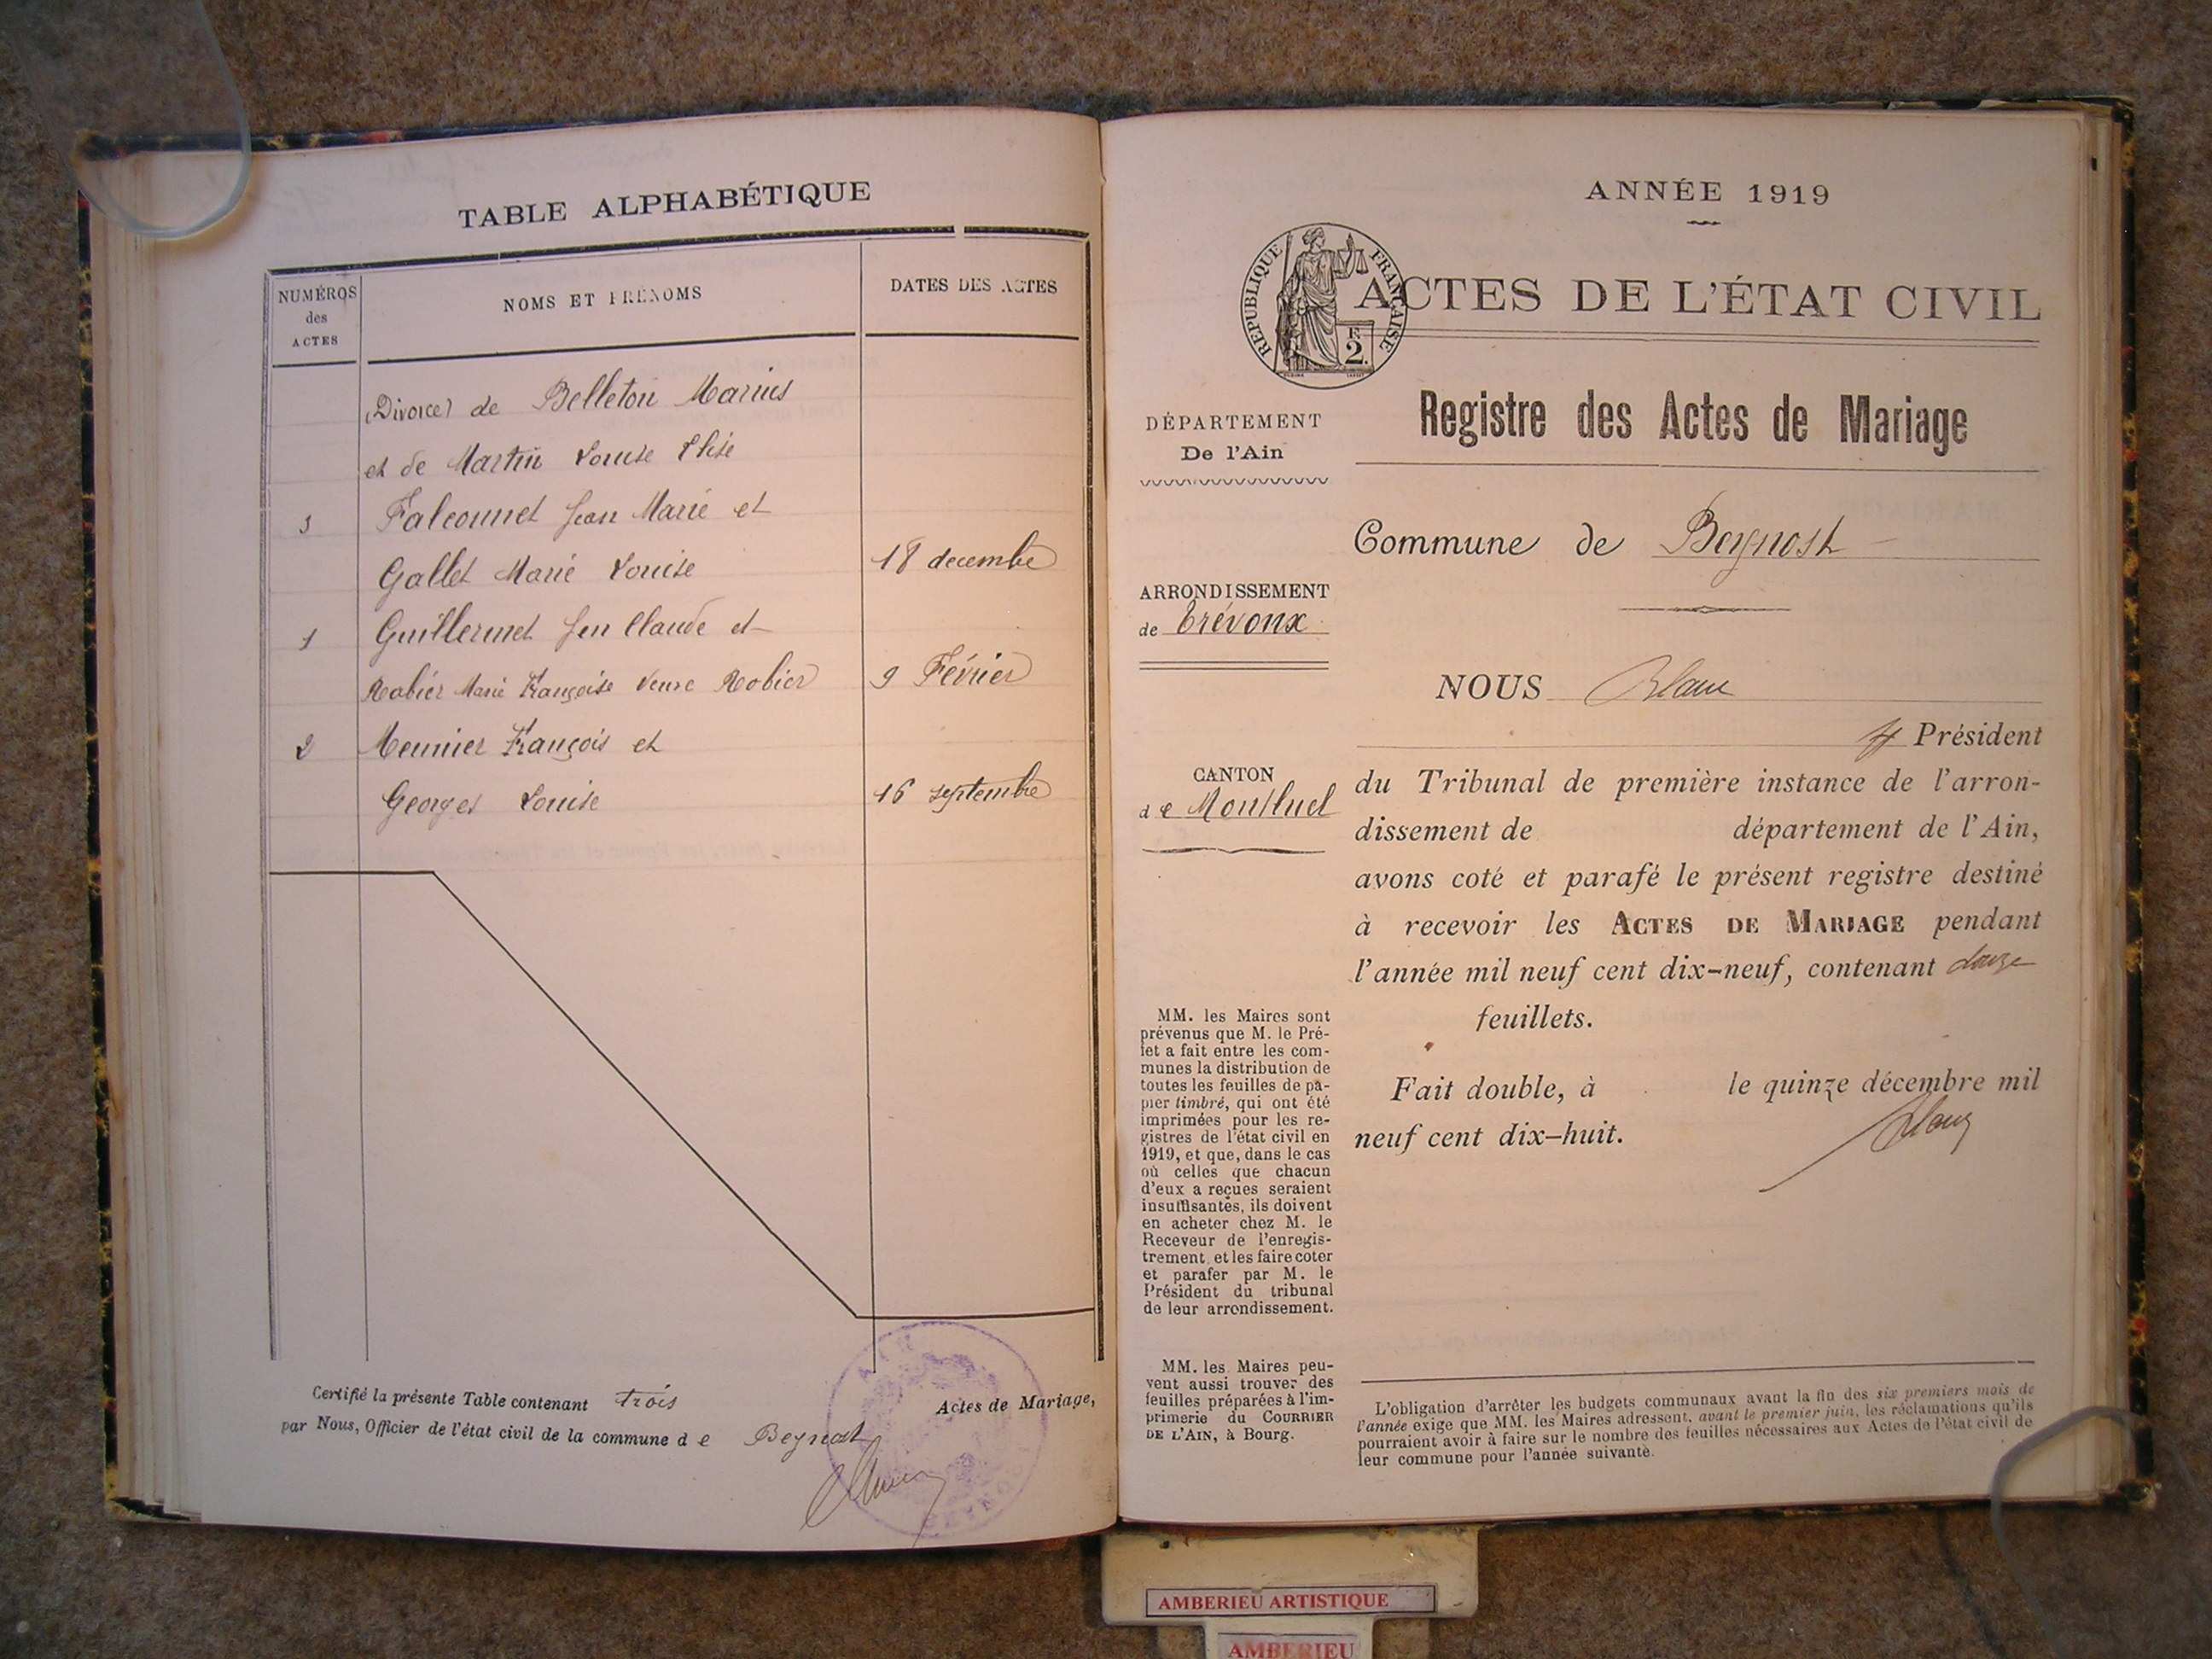 TABLE ALPHABÉTIQUE
NUMÉROS
des
ACTES
NOMS ET PRÉNOMS
DATES DES ACTES
(Divorce) de Belleton Marius
et de Martin Louise Elise
3 Falconnet Jean Marie et
Gallet Marie Louise 18 decembre
1 Guillermet Jean Claude et
Robier Marie Françoise Veuve Robier 9 Février
2 Meunier François et
Georges Louise 16 septembre
Certifié la présente Table contenant trois Actes de Mariage,
par Nous, Officier de l'état civil de la commune de Beynost
ANNÉE 1919
RÉPUBLIQUE FRANÇAISE
F.
2.
ACTES DE L'ÉTAT CIVIL
Registre des Actes de Mariage
DÉPARTEMENT
De l'Ain
Commune de Beynost
ARRONDISSEMENT
de Trévoux
NOUS Blanc
Président
CANTON
de Montluel
du Tribunal de première instance de l'arron-
dissement de département de l'Ain,
avons coté et parafé le présent registre destiné
à recevoir les ACTES DE MARIAGE pendant
l'année mil neuf cent dix-neuf, contenant douze
feuillets.
Fait double, à le quinze décembre mil
neuf cent dix-huit.
MM. les Maires sont
prévenus que M. le Pré-
fet a fait entre les com-
munes la distribution de
toutes les feuilles de pa-
pier timbré, qui ont été
imprimées pour les re-
gistres de l'état civil en
1919, et que, dans le cas
où celles que chacun
d'eux a reçues seraient
insuffisantes, ils doivent
en acheter chez M. le
Receveur de l'enregis-
trement et les faire coter
et parafer par M. le
Président du tribunal
de leur arrondissement.
MM. les Maires peu-
vent aussi trouver des
feuilles préparées à l'im-
primerie du COURRIER
DE L'AIN, à Bourg.
L'obligation d'arrêter les budgets communaux avant la fin des six premiers mois de
l'année exige que MM. les Maires adressent, avant le premier juin, les réclamations qu'ils
pourraient avoir à faire sur le nombre des feuilles nécessaires aux Actes de l'état civil de
leur commune pour l'année suivante.
AMBERIEU ARTISTIQUE
AMBERIEU